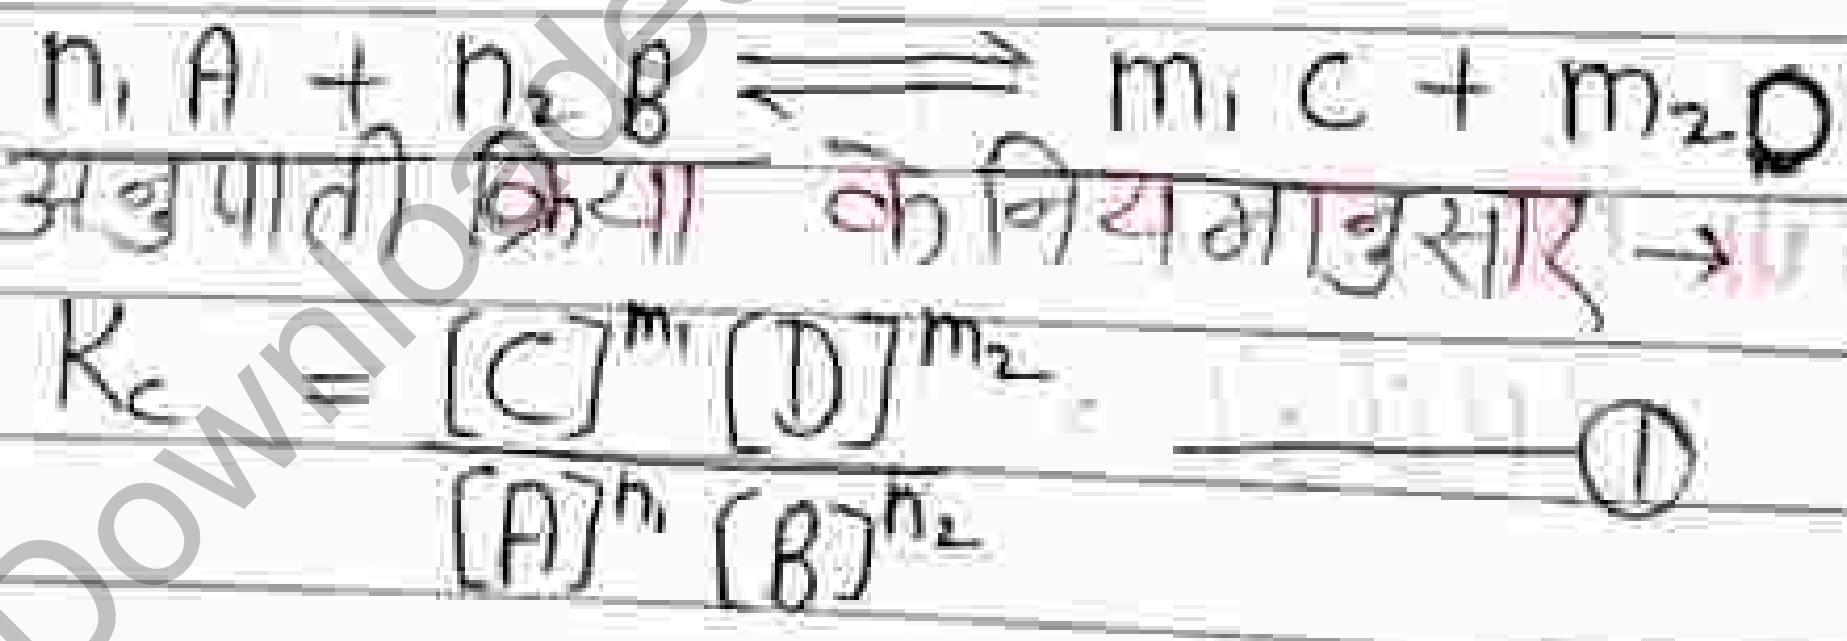 n₁ A + n₂ B ⇌ m₁ C + m₂ D
अनुपाती क्रिया के नियमानुसार →
Kc = [C]^m₁ [D]^m₂ ——— ①
[A]^n₁ [B]^n₂
Downloaded